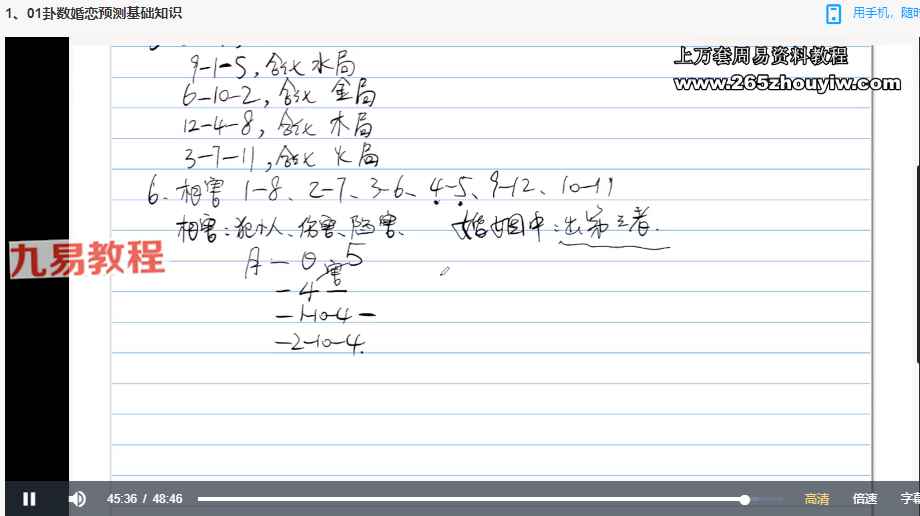 1、01卦数婚恋预测基础知识
用手机，随时
上万套周易资料教程
www.265zhouyiw.com
9-1-5,合化水局
6-10-2,合化金局
12-4-8,合化木局
3-7-11,合化火局
6、相害 1-8、2-7、3-6、4-5、9-12、10-11
相害:犯小人、伤害、陷害、 婚姻中:出第三者.
九易教程
月-0 5
害
-4-
-1-10-4-
-2-10-4.
45:36 / 48:46
高清
倍速
字幕